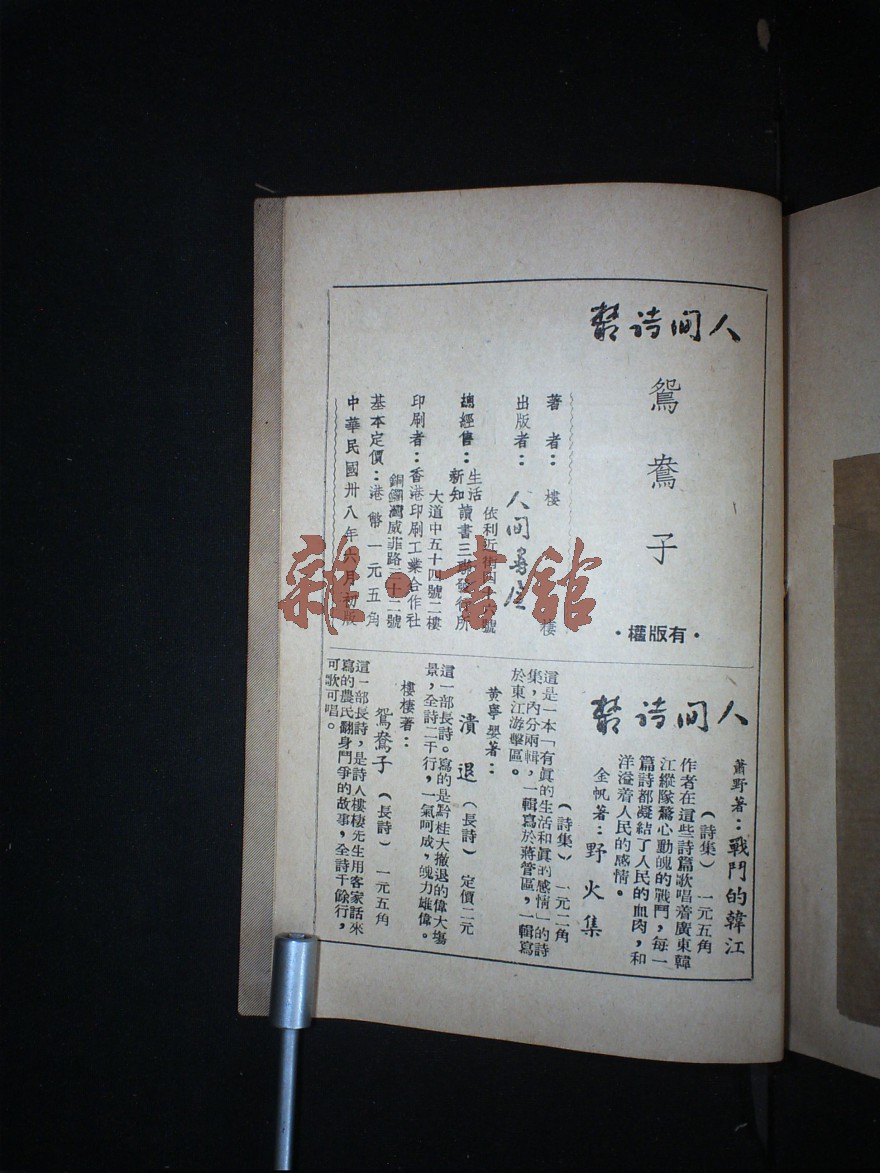 人間詩叢
鴛鴦子
·有版權·
著者：樓棲
出版者：人間書屋
總經售：生活
新知
讀書三聯發行所
大道中五十四號二樓
印刷者：香港印刷工業合作社
基本定價：港幣一元五角
中華民國卅八年六月初版
人間詩叢
蕭野著：戰鬥的韓江
（詩集）一元五角
作者在這些詩篇歌唱着廣東韓
江縱隊驚心動魄的戰鬥，每一
篇詩都凝結了人民的血肉，和
洋溢着人民的感情。
金帆著：野火集
（詩集）一元二角
這是一本「有眞的生活和眞的感情」的詩
集，內分兩輯，一輯寫於蔣管區，一輯寫
於東江游擊區。
黃寧嬰著：
潰退（長詩）定價二元
這一部長詩。寫的是黔桂大撤退的偉大塲
景，全詩二千行，一氣呵成，魄力雄偉。
樓棲著：
鴛鴦子（長詩）一元五角
這一部長詩，是詩人樓棲先生用客家話來
寫的農民翻身鬥爭的故事，全詩千餘行，
可歌可唱。
雜·書舘